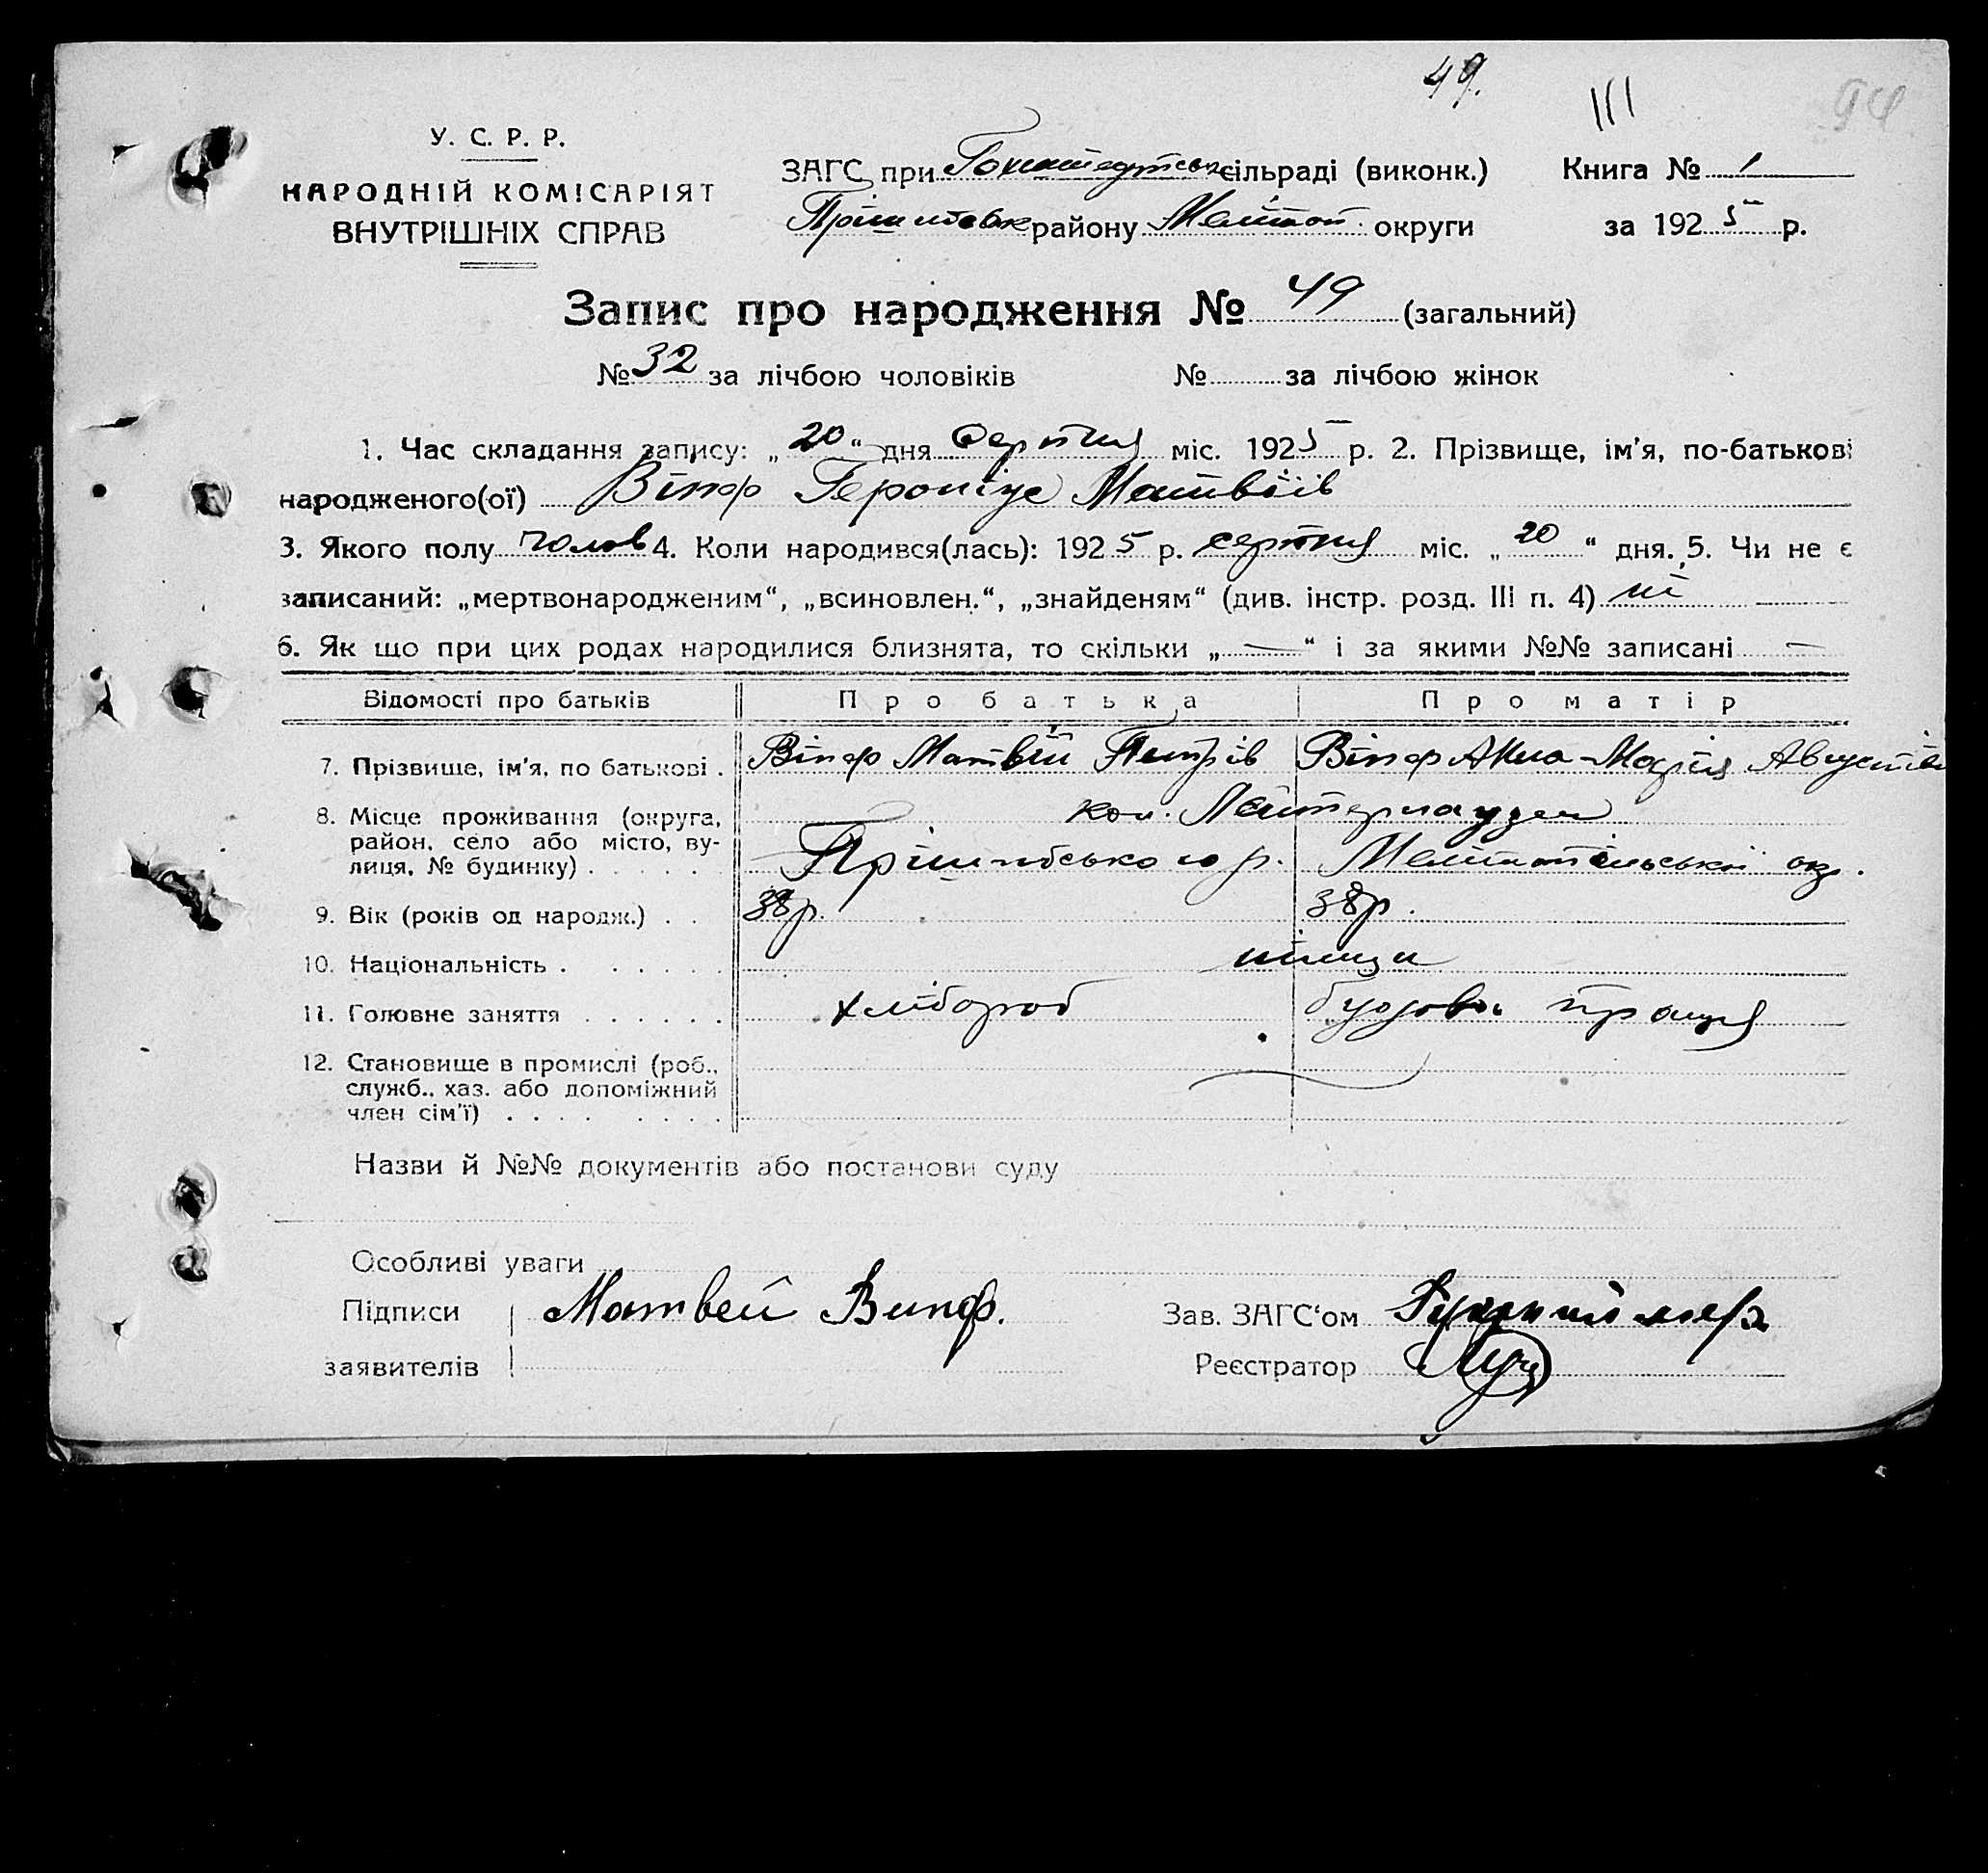 49.
III
94
У. С. Р. Р.
НАРОДНІЙ КОМІСАРІЯТ
ВНУТРІШНІХ СПРАВ
ЗАГС при Гохштедтськ сільраді (виконк.)
Книга № 1
Пришибськ району Мелітоп округи
за 1925 р.
Запис про народження № 49 (загальний)
№ 32 за лічбою чоловіків № за лічбою жінок
1. Час складання запису: „20“ дня Серпня міс. 1925 р. 2. Прізвище, ім’я, по-батькові
народженого(ої) Віпф Героніус Матвіїв
3. Якого полу чолов 4. Коли народився(лась): 1925 р. серпня міс. „20“ дня. 5. Чи не є
записаний: „мертвонародженим“, „всиновлен.“, „знайденям“ (див. інстр. розд. III п. 4) ні
6. Як що при цих родах народилися близнята, то скільки „—“ і за якими №№ записані —
Відомості про батьків Про батька Про матір
7. Прізвище, ім’я, по батькові . Віпф Матвій Петрів Віпф Анна-Марія Августів
8. Місце проживання (округа,
район, село або місто, ву-
лиця, № будинку) . . . . .
кол. Лейтерсгаузен
Пришибського р. Мелітопільської окр.
9. Вік (років од народж.) . . 38р. 38р.
10. Національність . . . . . . німци
11. Головне заняття . . . . . . хлібороб будова праця
12. Становище в промислі (роб.,
служб., хаз. або допоміжний
член сім’ї) . . . . . . . .
Назви й №№ документів або постанови суду
Особливі уваги
Підписи Матвей Випф.
Зав. ЗАГС‘ом
заявителів
Реєстратор